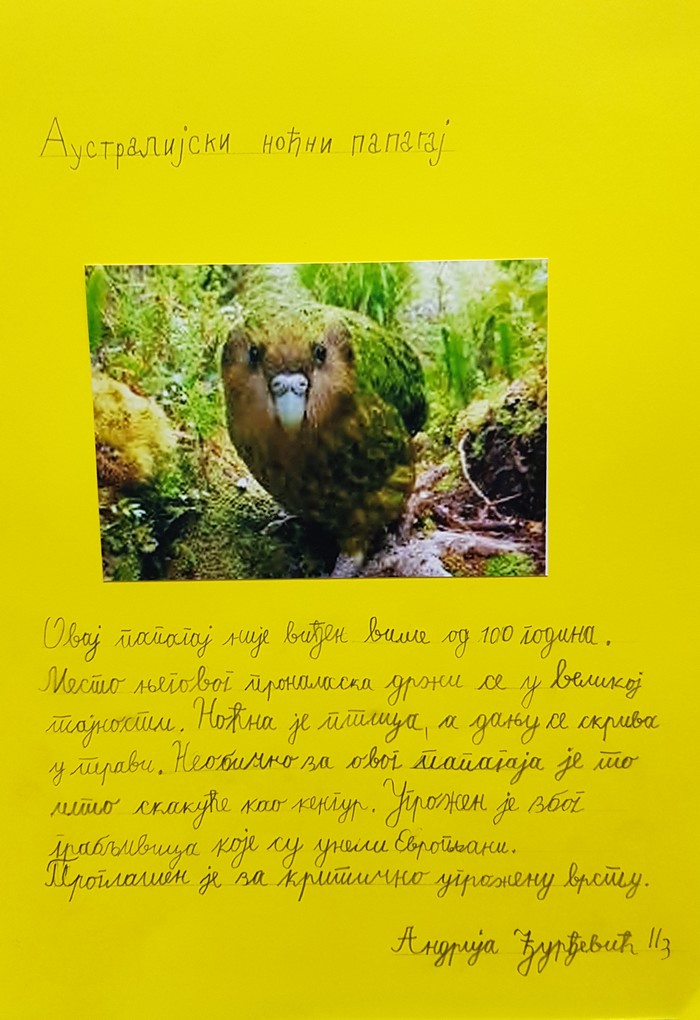 Аустралијски ноћни папагај
Овај папагај није виђен више од 100 година.
Место његовог проналаска држи се у великој
тајности. Ноћна је птица, а дању се скрива
у трави. Необично за овог папагаја је то
што скакуће као кенгур. Угрожен је због
грабљивица које су унели Европљани.
Проглашен је за критично угрожену врсту.
Андрија Ђурђевић II3